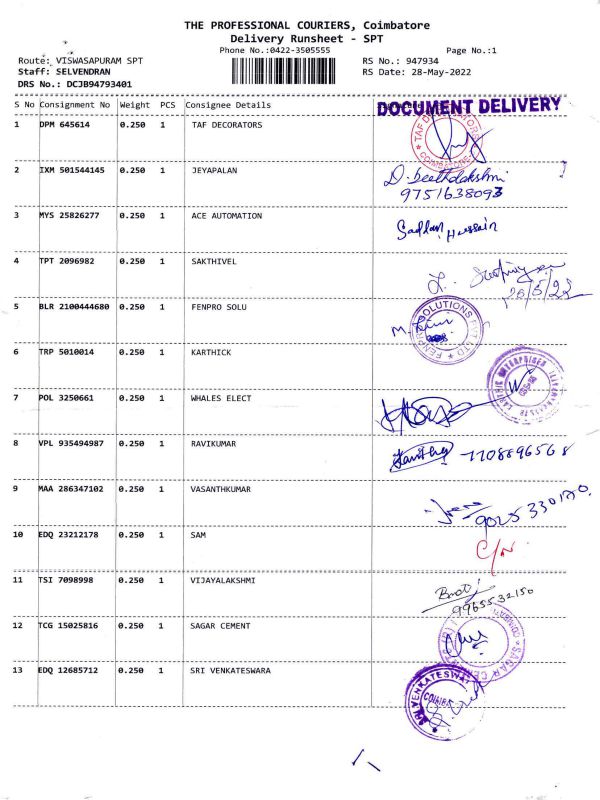 THE PROFESSIONAL COURIERS, Coimbatore
Delivery Runsheet - SPT
Phone No.:0422-3505555 Page No.:1
Route: VISWASAPURAM SPT RS No.: 947934
Staff: SELVENDRAN RS Date: 28-May-2022
DRS No.: DCJB94793401
S No Consignment No Weight PCS Consignee Details
DOCUMENT DELIVERY
1 DPM 645614 0.250 1 TAF DECORATORS
TAF DECORATORS
2 IXM 501544145 0.250 1 JEYAPALAN
9751638093
3 MYS 25826277 0.250 1 ACE AUTOMATION
Hussain
4 TPT 2096982 0.250 1 SAKTHIVEL
5 BLR 2100444680 1 0.250 FENPRO SOLU
SOLUTIONS
6 TRP 5010014 0.250 1 KARTHICK
ENTERPRISES
7 POL 3250661 0.250 1 WHALES ELECT
8 VPL 935494987 0.250 1 RAVIKUMAR
9 MAA 286347102 0.250 1 VASANTHKUMAR
10 EDQ 23212178 0.250 1 SAM
11 TSI 7098998 0.250 1 VIJAYALAKSHMI
9965532150
12 TCG 15025816 0.250 1 SAGAR CEMENT
13 EDQ 12685712 0.250 1 SRI VENKATESWARA